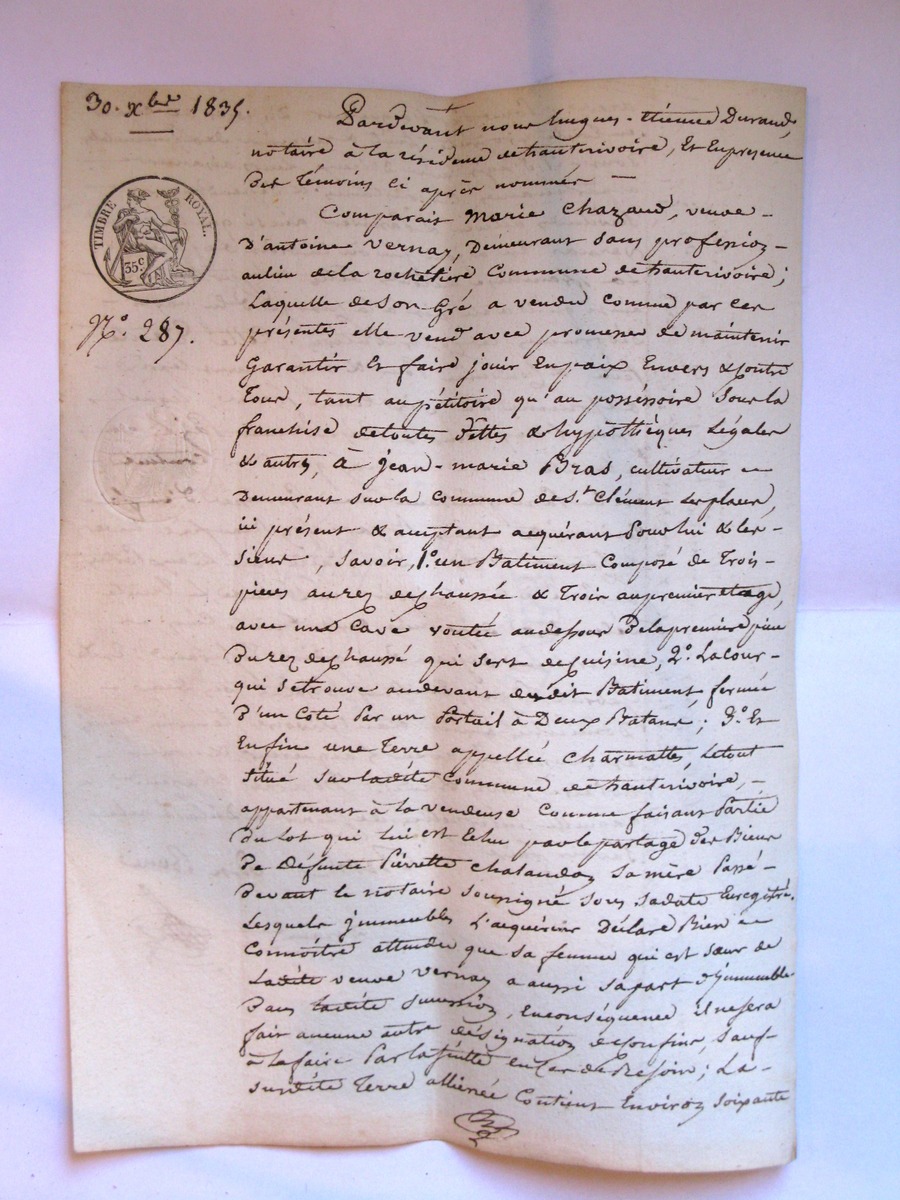 30. Xbre 1835.
TIMBRE ROYAL.
35c
No. 287.
Pardevant nous hugues-étienne Durand,
notaire à la résidence de hauterivoire, Et En presence
Des témoins Ci après nommés —
Comparait Marie Chazaud, veuve -
D'antoine Vernay, Demeurant sans profession -
au lieu de la rochetière Commune de hauterivoire;
Laquelle de son Gré a vendu comme par ces
présentes elle vend avec promesse de maintenir
Garantir Et faire jouir En paix Envers & contre
Tous, tant au pétitoire qu'au posséssoire Sous la
franchise de toutes Dettes & hypothèques Légales
& autres, à jean-marie Bras, cultivateur
Demeurant sur la Commune de St. Clément les places,
ici présent & acceptant acquérant Pour lui & les
siens, savoir, 1o. un Batiment Composé de Trois -
pieces au rez de chaussée & Trois au premier étage,
avec une Cave voutée au dessous De la premiere pièce
Du rez de chaussé qui sert de cuisine, 2o. La cour -
qui se trouve au devant du dit Batiment, fermée
D'un Coté Par un Portail à Deux Batans; 3o. Et
Enfin une Terre appellée Charmattes, le tout
Situé sur ladite commune de hauterivoire, -
appartenant à la vendeuse Comme faisant Partie
Du Lot qui lui est Echu par le partage des Biens
De Défunte Pierrette Chalanday sa mère Passé -
Devant le notaire soussigné sous sa date Enregistré.
Lesquels jmmeubles L'acquéreur Déclare Bien
Connoitre attendu que sa femme qui est sœur de
Ladite veuve Vernay a aussi sa part d'jmmeubles
Dans ladite succession, En conséquence il ne sera
fait aucune autre désignation de confins, sauf -
à le faire Par la suite en cas de Besoin; La -
susdite Terre alliénée Contient Environ soixante